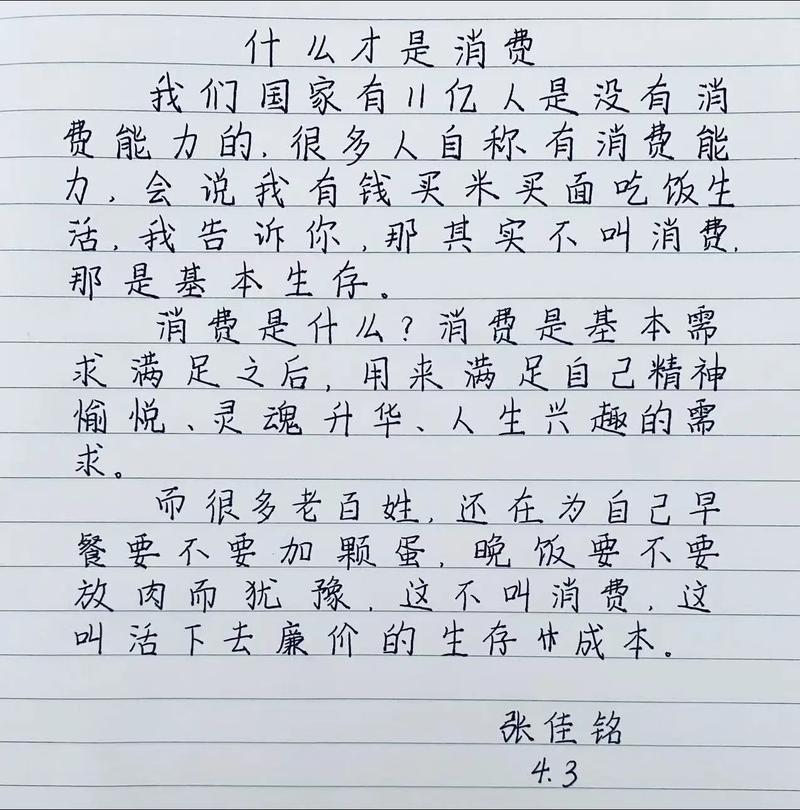 什么才是消费
我们国家有11亿人是没有消
费能力的,很多人自称有消费能
力,会说我有钱买米买面吃饭生
活,我告诉你,那其实不叫消费,
那是基本生存。
消费是什么?消费是基本需
求满足之后,用来满足自己精神
愉悦、灵魂升华、人生兴趣的需
求。
而很多老百姓,还在为自己早
餐要不要加颗蛋,晚饭要不要
放肉而犹豫,这不叫消费,这
叫活下去廉价的生存成本。
张佳铭
4.3